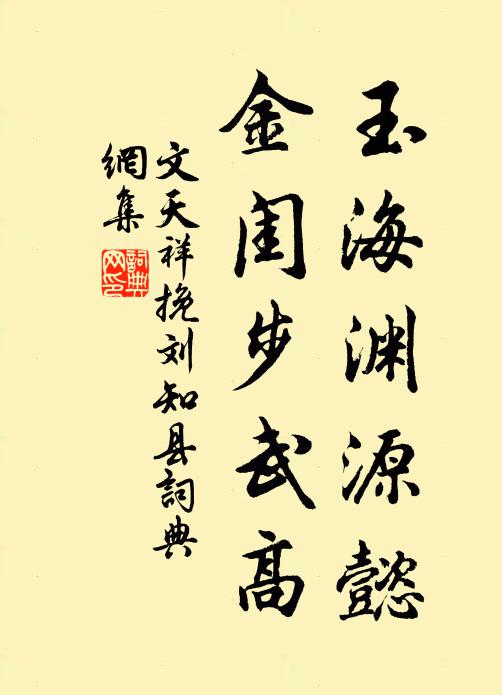 玉海渊源懿
金闺步武高
文天祥挽刘知县詞典
網集
詞典
网印